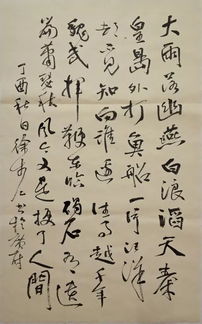 大雨落幽燕白浪滔天秦
皇島外打魚船一片汪洋
都不見知向誰邊往事越千年
魏武揮鞭東臨碣石有遺
篇蕭瑟秋風今又是換了人間
丁酉秋日徐書於